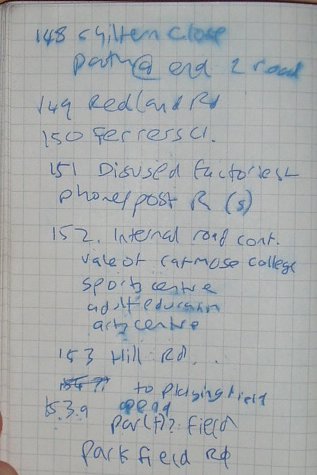 148 Chiltern Close
path @ end 2 road
149 Redland Rd
150 Ferrers Cl.
151 Disused factories L
phone/post R (s)
152. Internal road cont.
Vale of Catmose College
sports centre
adult education
arts centre
153 Hill Rd...
to playing field
153a
par(t)? field
Parkfield Rd